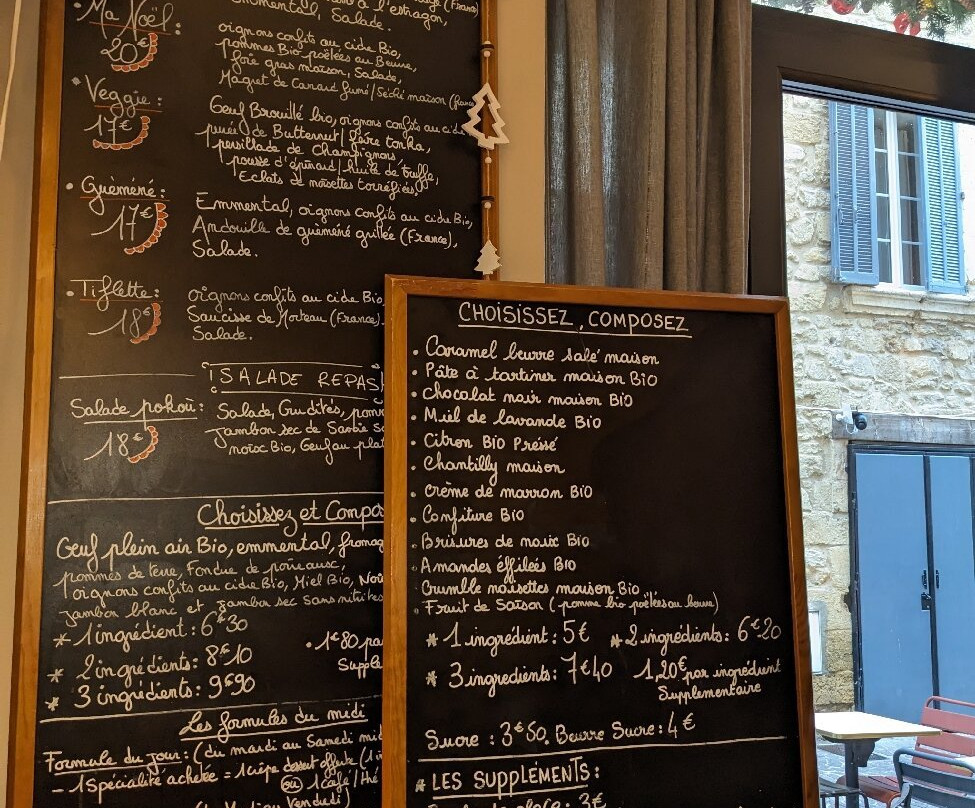 Emmental, Salade.
• Ma Noël :
20€
oignons confits au cidre Bio,
pommes Bio poêlées au Beurre,
Foie gras maison, Salade,
Magret de Canard fumé/Séché maison (France
• Veggie :
17€
Oeuf Brouillé bio, oignons confits au cid
purée de Butternut/Fève tonka,
persillade de champignons,
pousse d'épinard/huile de truffe,
Eclats de noisettes torréfiées,
• Guèmené :
17€
Emmental, oignons confits au cidre Bio,
Andouille de guèmené grillée (France),
Salade.
• Tiflette :
18€
oignons confits au cidre Bio
Saucisse de Morteau (France).
Salade.
SALADE REPAS
Salade pokou :
18€
Salade, Crudités, pomm
jambon sec de Savoie S
noix Bio, Oeuf au plat
Choisissez et Compo
Oeuf plein air Bio, emmental, fromag
pommes de terre, Fondue de poireaux,
oignons confits au cidre Bio, Miel Bio, Noi
jambon blanc et jambon sec sans nitrites
* 1 ingrédient : 6€30
* 2 ingrédients : 8€10
* 3 ingrédients : 9€90
• 1€80 pa
Supple
Les formules du midi
Formule du jour : (du mardi au Samedi mid
– 1 Spécialité achetée = 1 crêpe dessert offerte (1
ou 1 café/thé
Vendredi)
CHOISISSEZ, COMPOSEZ
• Caramel beurre salé maison
• Pâte à tartiner maison BIO
• Chocolat noir maison BIO
• Miel de lavande BIO
• Citron BIO Pressé
• Chantilly maison
• Crème de marron BIO
• Confiture BIO
• Brisures de noix BIO
• Amandes éffilées BIO
Crumble noisettes maison BIO
• Fruit de Saison (pomme bio poêlées au beurre)
* 1 ingrédient : 5€ * 2 ingrédients : 6€20
* 3 ingredients : 7€40 1,20€ par ingrédient
Supplementaire
Sucre : 3€50. Beurre Sucre : 4€
* LES SUPPLÉMENTS :
3€